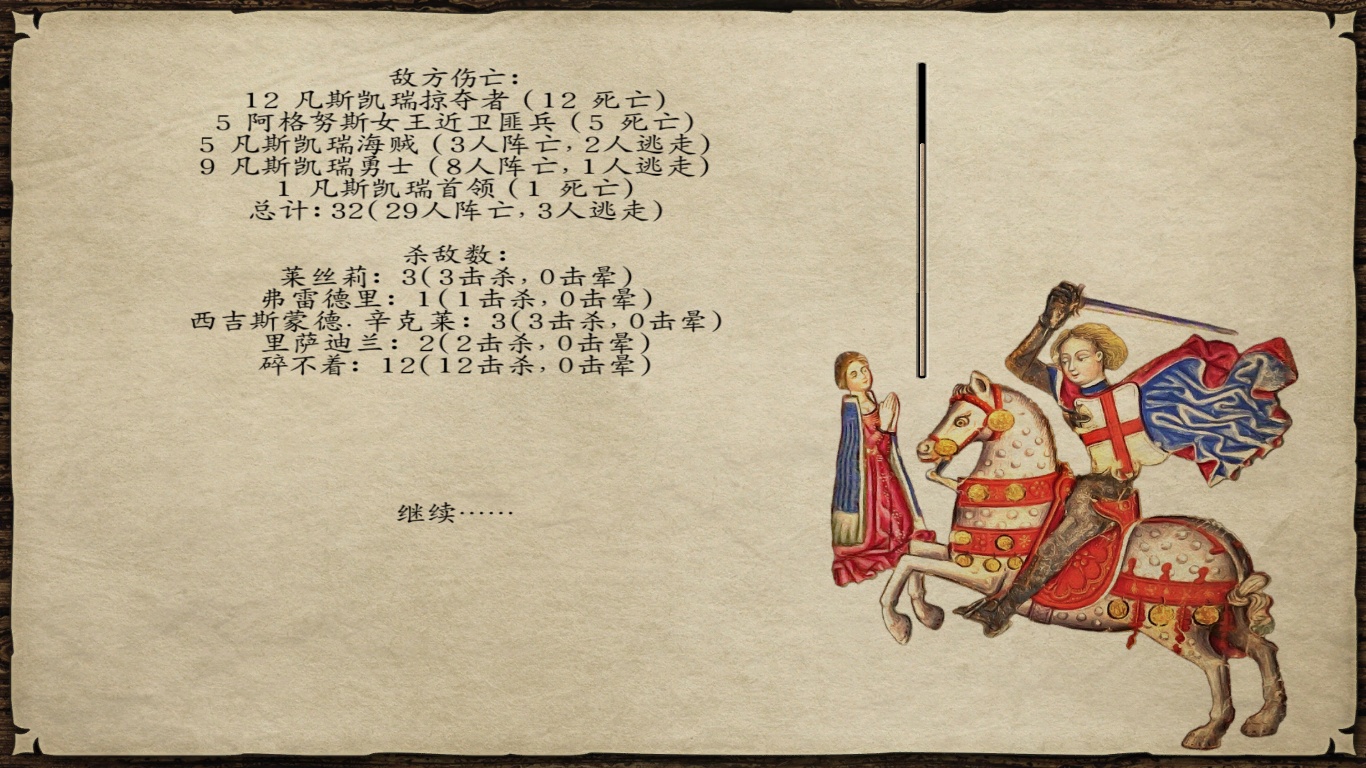 敌方伤亡：
12 凡斯凯瑞掠夺者（12 死亡）
5 阿格努斯女王近卫匪兵（5 死亡）
5 凡斯凯瑞海贼（3人阵亡，2人逃走）
9 凡斯凯瑞勇士（8人阵亡，1人逃走）
1 凡斯凯瑞首领（1 死亡）
总计：32(29人阵亡，3人逃走)
杀敌数：
莱丝莉：3(3击杀，0击晕)
弗雷德里：1(1击杀，0击晕)
西吉斯蒙德.辛克莱：3(3击杀，0击晕)
里萨迪兰：2(2击杀，0击晕)
碎不着：12(12击杀，0击晕)
继续……